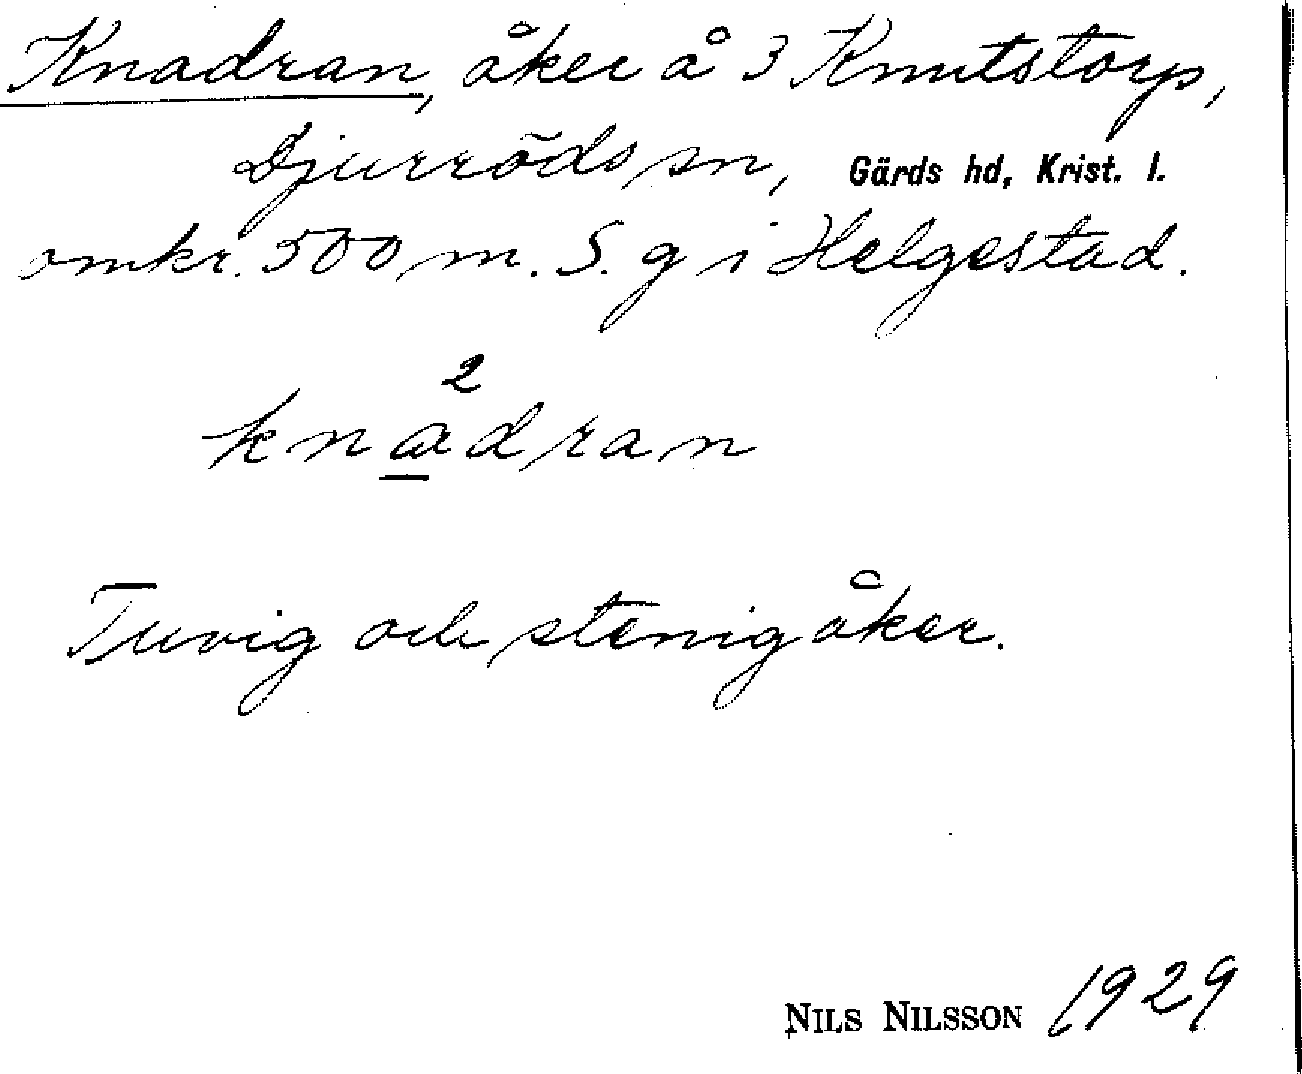 Knadran, åker å 3 Knutstorp,
Djurröds sn, Gärds hd, Krist. l.
omkr. 500 m. S. g i Helgestad.
2
knadran
Tuvig och stenig åker.
NILS NILSSON 1929